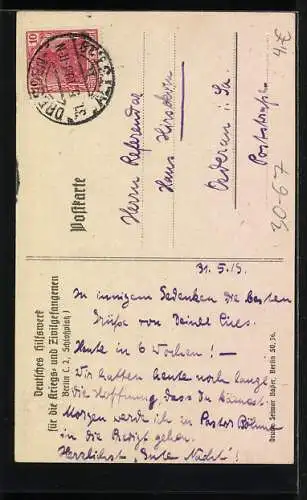 Postkarte
Herrn Referendar
Hans
Oederan i. Sa.
Poststraße
4,-€
30-67
10
DRESDEN
31. 5. 19.
In innigem Gedenken die besten
Grüße von Deiner
Heute in 6 Wochen! —
Wir hatten heute noch
die Hoffnung, dass Du kämest.
Morgen werde ich zu Pastor Böhme
in die Predigt gehen.
Herzlichst "Gute Nacht"!
Deutsches Hilfswerk
für die Kriegs- und Zivilgefangenen
Berlin C. 2, Schloßplatz 1
Druck: Selmar Bayer, Berlin SO. 36.